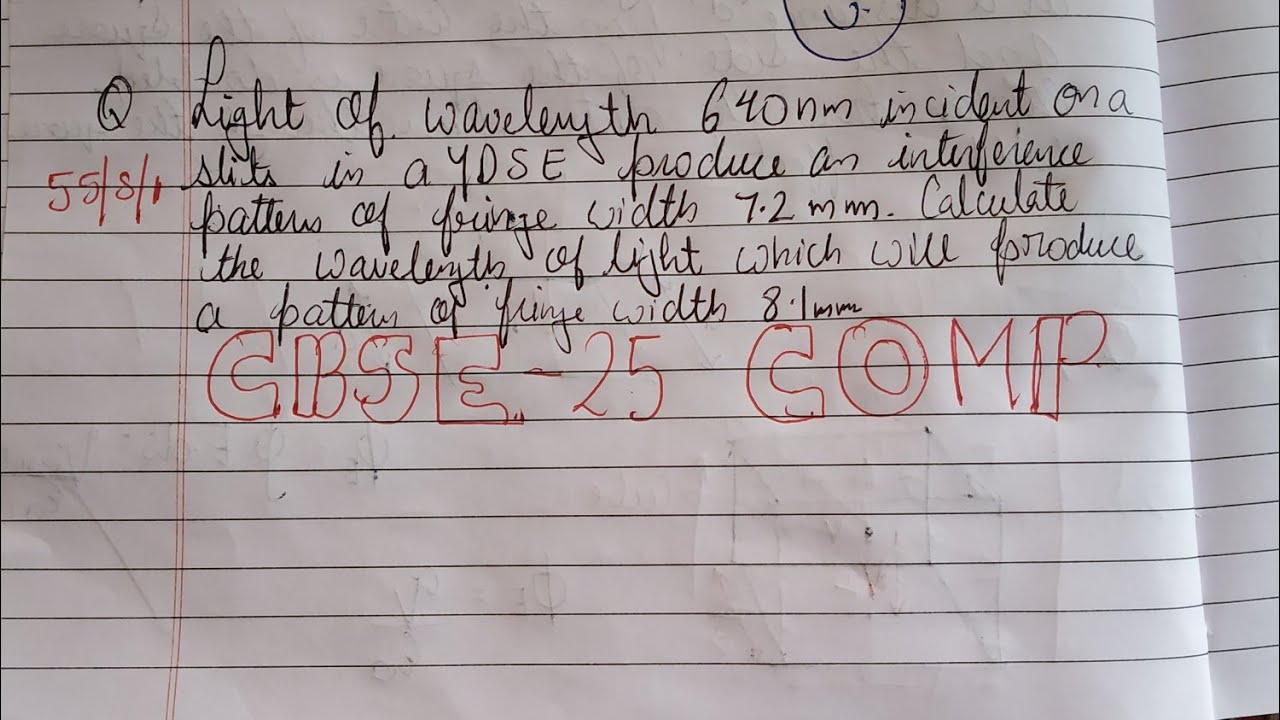 Q Light of wavelength 640nm incident on a
55/8/1 slits in a YDSE produce an interference
pattern of fringe width 7.2 mm. Calculate
the wavelength of light which will produce
a pattern of fringe width 8.1mm
CBSE-25 COMP